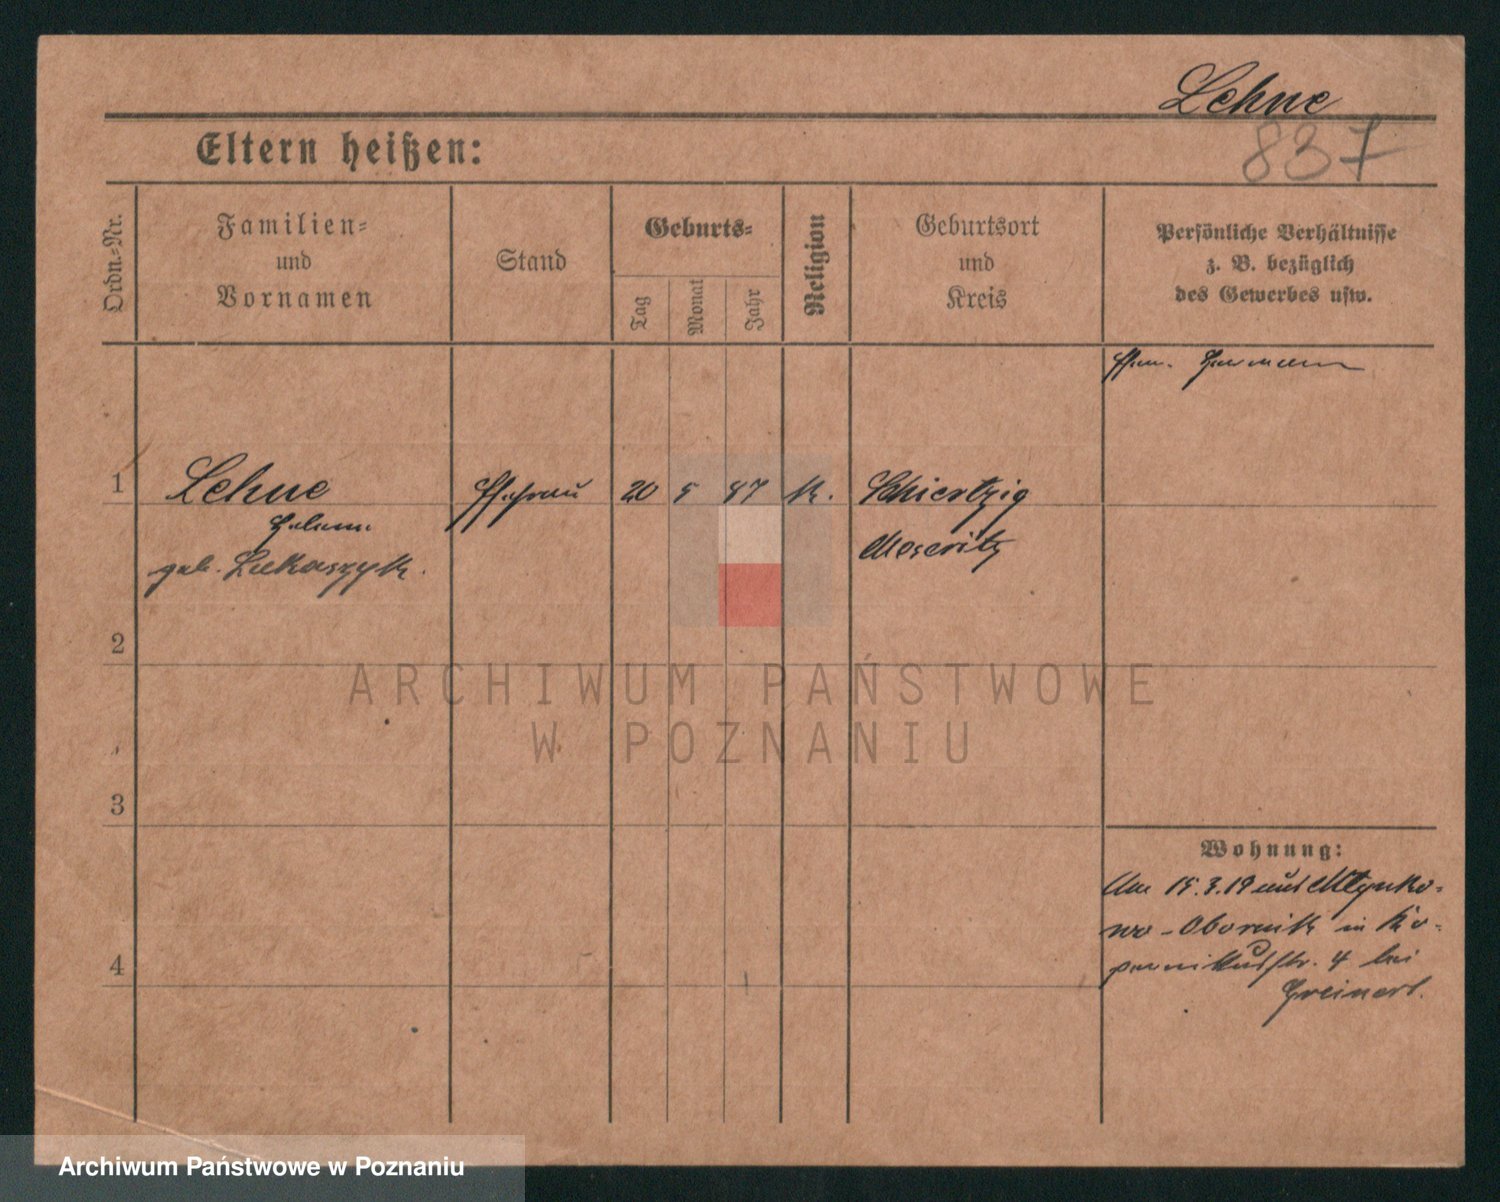 Lehne
837
Eltern heißen:
Ordn.-Nr.
Familien-
und
Vornamen
Stand
Geburts-
Tag
Monat
Jahr
Religion
Geburtsort
und
Kreis
Persönliche Verhältnisse
z. B. bezüglich
des Gewerbes usw.
Ehem. Hermann
1
Lehne
Ehefrau
20
5
87
K.
Schiertzig
Helene
Meseritz
geb. Lukaszyk.
2
ARCHIWUM PAŃSTWOWE
W POZNANIU
3
Wohnung:
Am 15.3.19 aus Mlynko-
wo - Obornik in Ko-
pernikusstr. 4 bei
Greinert.
4
Archiwum Państwowe w Poznaniu